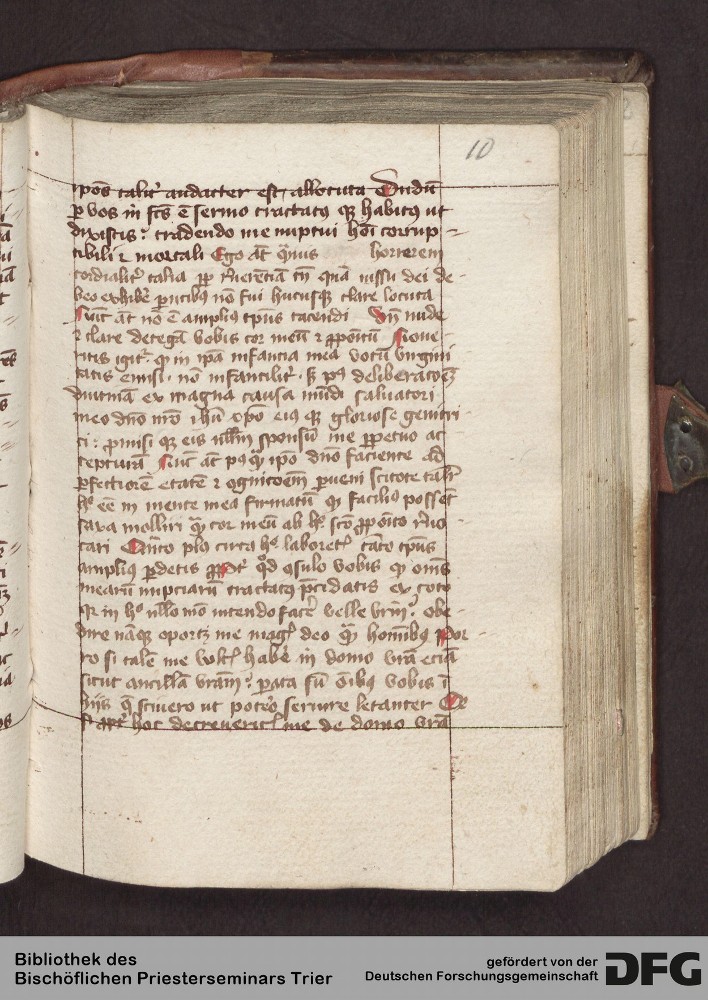 10
ipos talit᷑ audacter est allocuta Dudū
ꝑ vos in scīs ē sermo tractatꝰ qꝫ habitꝰ ut
dixistis tradendo me nuptui hōi corrup-
tibili ⁊ mortali Ego aūt quīs horrerem
cordialit᷑ talia ꝓp reuerētiā tn̄ quā iussu dei de
beo exhibē parētibꝰ nō fui hucusqꝫ clare locuta
Nūc aūt nō ē ampliꝰ tp̄us tacendi Vn̄ nude
⁊ clare detegā vobis cor meū ⁊ ꝓpōitū Noue-
ritis igit᷑ ꝙ in ipa infancia mea votū virgini
tatis emisi nō infantilit᷑ sꝫ pꝰ deliberacōeꝫ
diutinā ex magna causa mūdi saluatori
meo dn̄o nr̄o ihū xp̄o eiꝰ qꝫ gloriose genitri-
ci : ꝓmisi qꝫ eis nullū sponsū me ꝑpetuo ac
cepturā Nūc aūt pꝰqꝫ ipo dn̄o faciente ad
ꝑfectiorē etatē ⁊ cognicōem ꝑueni scitote talit᷑
hͦ eē in mente mea firmatū ꝙ faciliꝰ posset
saxa molliri qꝫ cor meū ab hͦ scō ꝓpōito reuo-
cari Qn̄to plꝰ circa hͦ laboret᷑ tāto tp̄us
ampliꝰ ꝑdetis qd cōsulo vobis ꝙ om̄s
mearū nupciarū tractatꝰ p̄cidatis ex toto
qr in hͦ nullo mō intendo facē velle vrm̄ Obe-
dire nāqꝫ oportꝫ me magꝭ deo qꝫ hominibꝰ Por-
ro si talē me vultꝭ habē in domo vrā eciā
sicut ancillā vrām : parata sū oībꝰ vobis ī
hijs q̄ sciuero ut potero seruire letanter
hoc decreueritꝭ me de domo vrā
Bibliothek des
Bischöflichen Priesterseminars Trier
gefördert von der
Deutschen Forschungsgemeinschaft
DFG